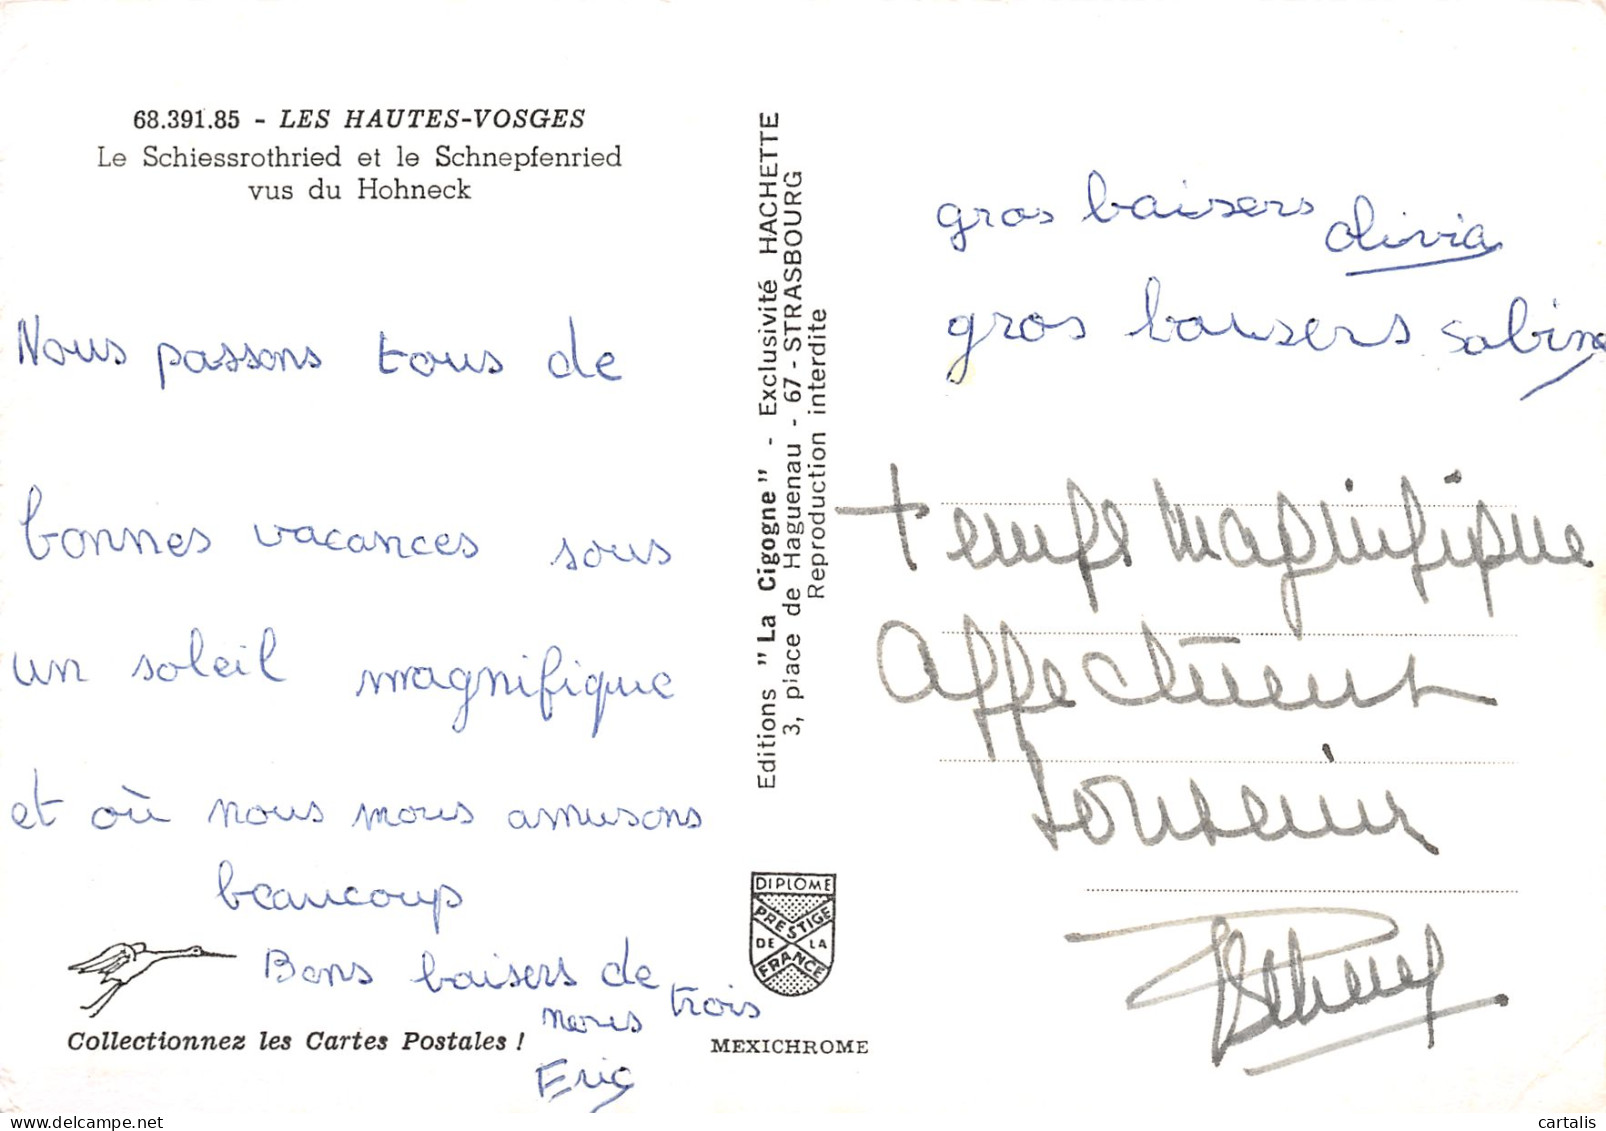 68.391.85 - LES HAUTES-VOSGES
Le Schiessrothried et le Schnepfenried
vus du Hohneck
Nous passons tous de
bonnes vacances sous
un soleil magnifique
et où nous nous amusons
beaucoup
Bons baisers de
nous trois
Eric
Collectionnez les Cartes Postales !
Editions "La Cigogne" - Exclusivité HACHETTE
3, place de Haguenau - 67 - STRASBOURG
Reproduction interdite
DIPLOME
PRESTIGE
DE LA
FRANCE
MEXICHROME
gros baisers olivia
gros baisers Sabine
temps magnifique
Affectueux
souvenir
cartalis.com